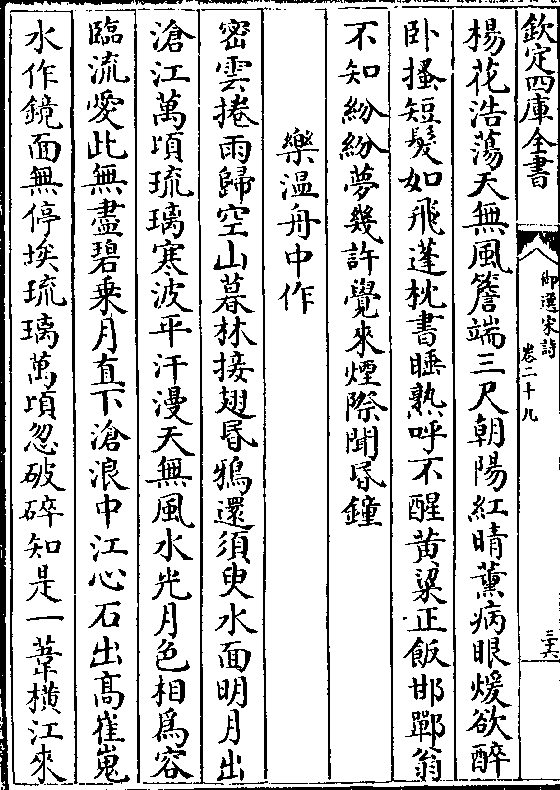 欽定四庫全書
御選宋詩
卷二十九
三六
楊花浩蕩天無風簷端三尺朝陽紅晴薰病眼煖欲醉
卧搔短髮如飛蓬枕書睡熟呼不醒黄粱正飯邯鄲翁
不知紛紛夢幾許覺來煙際聞昏鐘
樂溫舟中作
密雲捲雨歸空山暮林接翅昏鴉還須臾水面明月出
滄江萬頃琉璃寒波平汗漫天無風水光月色相為容
臨流愛此無盡碧乗月直下滄浪中江心石出高崔嵬
水作鏡面無停埃琉璃萬頃忽破碎知是一葦横江來